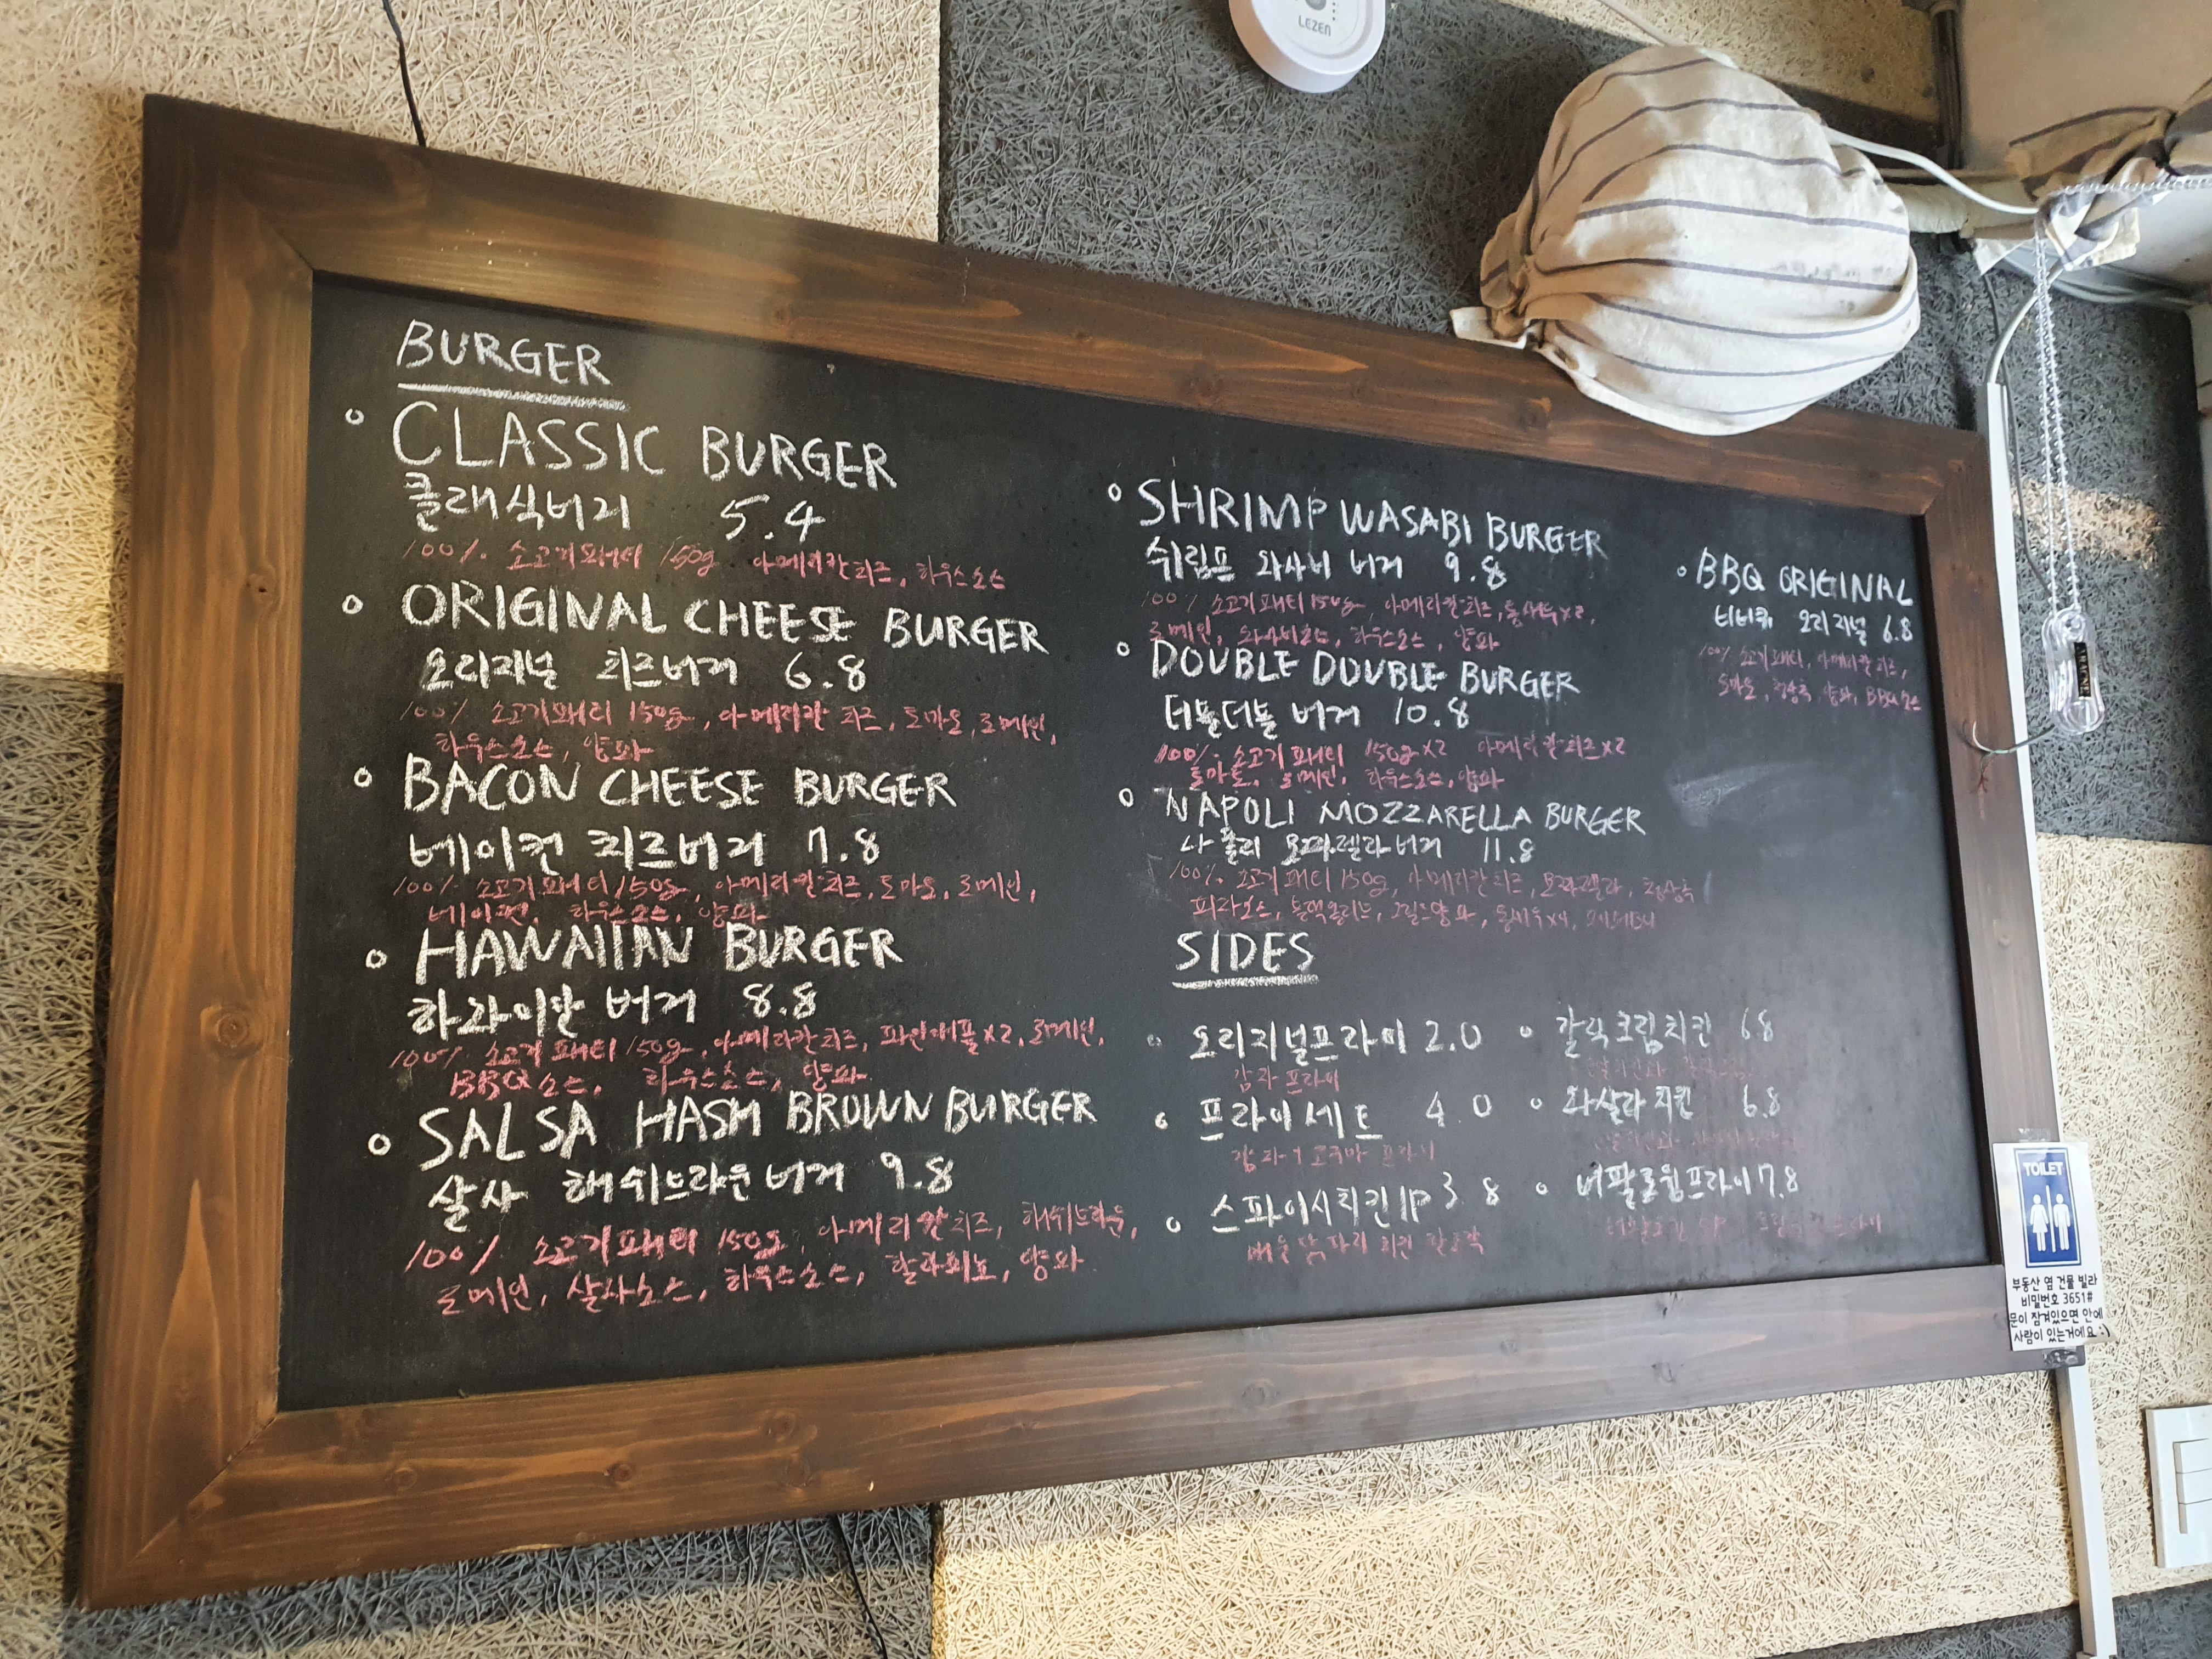 LEZEN
BURGER
CLASSIC BURGER
클래식버거 5.4
100% 소고기패티 150g 아메리칸치즈, 하우스소스
ORIGINAL CHEESE BURGER
오리지널 치즈버거 6.8
100% 소고기패티 150g, 아메리칸치즈, 토마토, 로메인,
하우스소스, 양파
BACON CHEESE BURGER
베이컨 치즈버거 7.8
100% 소고기패티 150g, 아메리칸치즈, 토마토, 로메인,
베이컨, 하우스소스, 양파
HAWAIIAN BURGER
하와이안 버거 8.8
100% 소고기 패티 150g, 아메리칸치즈, 파인애플x2, 로메인,
BBQ소스, 하우스소스, 양파
SALSA HASH BROWN BURGER
살사 해쉬브라운버거 9.8
100% 소고기패티 150g, 아메리칸치즈, 해쉬브라운,
로메인, 살사소스, 하우스소스, 할라피뇨, 양파
SHRIMP WASABI BURGER
쉬림프 와사비 버거 9.8
100% 소고기패티 150g, 아메리칸치즈, 통새우x2,
로메인, 하우스소스, 양파
DOUBLE DOUBLE BURGER
더블더블 버거 10.8
100% 소고기패티 150g x2 아메리칸치즈x2
토마토, 로메인, 하우스소스, 양파
NAPOLI MOZZARELLA BURGER
나폴리 모짜렐라버거 11.8
100% 소고기패티 150g, 아메리칸치즈, 모짜렐라, 청상추
피자소스, 블랙올리브, 그릴드양파, 통새우x4,
BBQ ORIGINAL
비비큐 오리지널 6.8
100% 소고기패티, 아메리칸치즈,
토마토, 청상추, 양파, BBQ소스
SIDES
오리지널프라이 2.0
감자 프라이
프라이세트 4.0
감자+고구마 프라이
스파이시치킨1P 3.8
매운 닭다리 치킨 한조각
갈릭크림치킨 6.8
와살라치킨 6.8
버팔로윙프라이 7.8
TOILET
부동산 옆 건물 빌라
비밀번호 3651#
문이 잠겨있으면 안에
사람이 있는거에요 :)